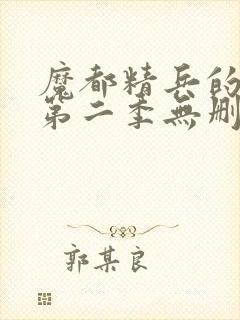 魔都精兵的
第二季無刪
郭某良